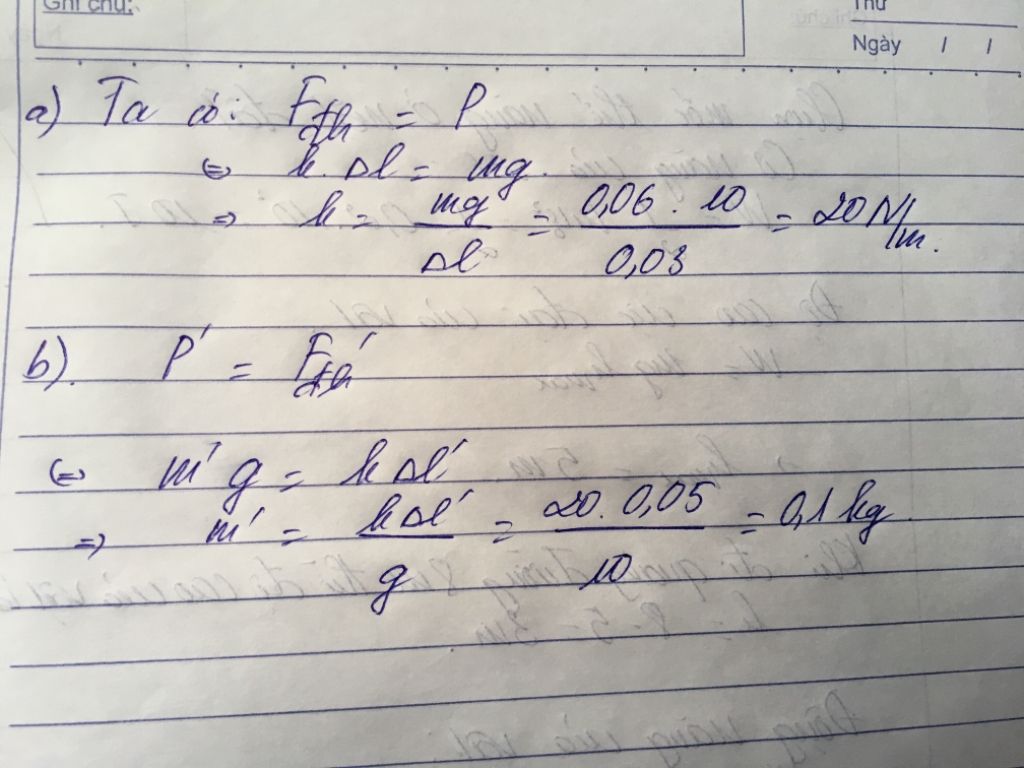 Ghi chú:
Thứ
Ngày / /
a) Ta có: Fđh = P
⇔ k.Δl = mg.
⇒ k = mg/Δl = 0,06 . 10/0,03 = 20 N/m.
b). P' = Fđh'
⇔ m'g = kΔl'
⇒ m' = kΔl'/g = 20. 0,05/10 = 0,1 kg.